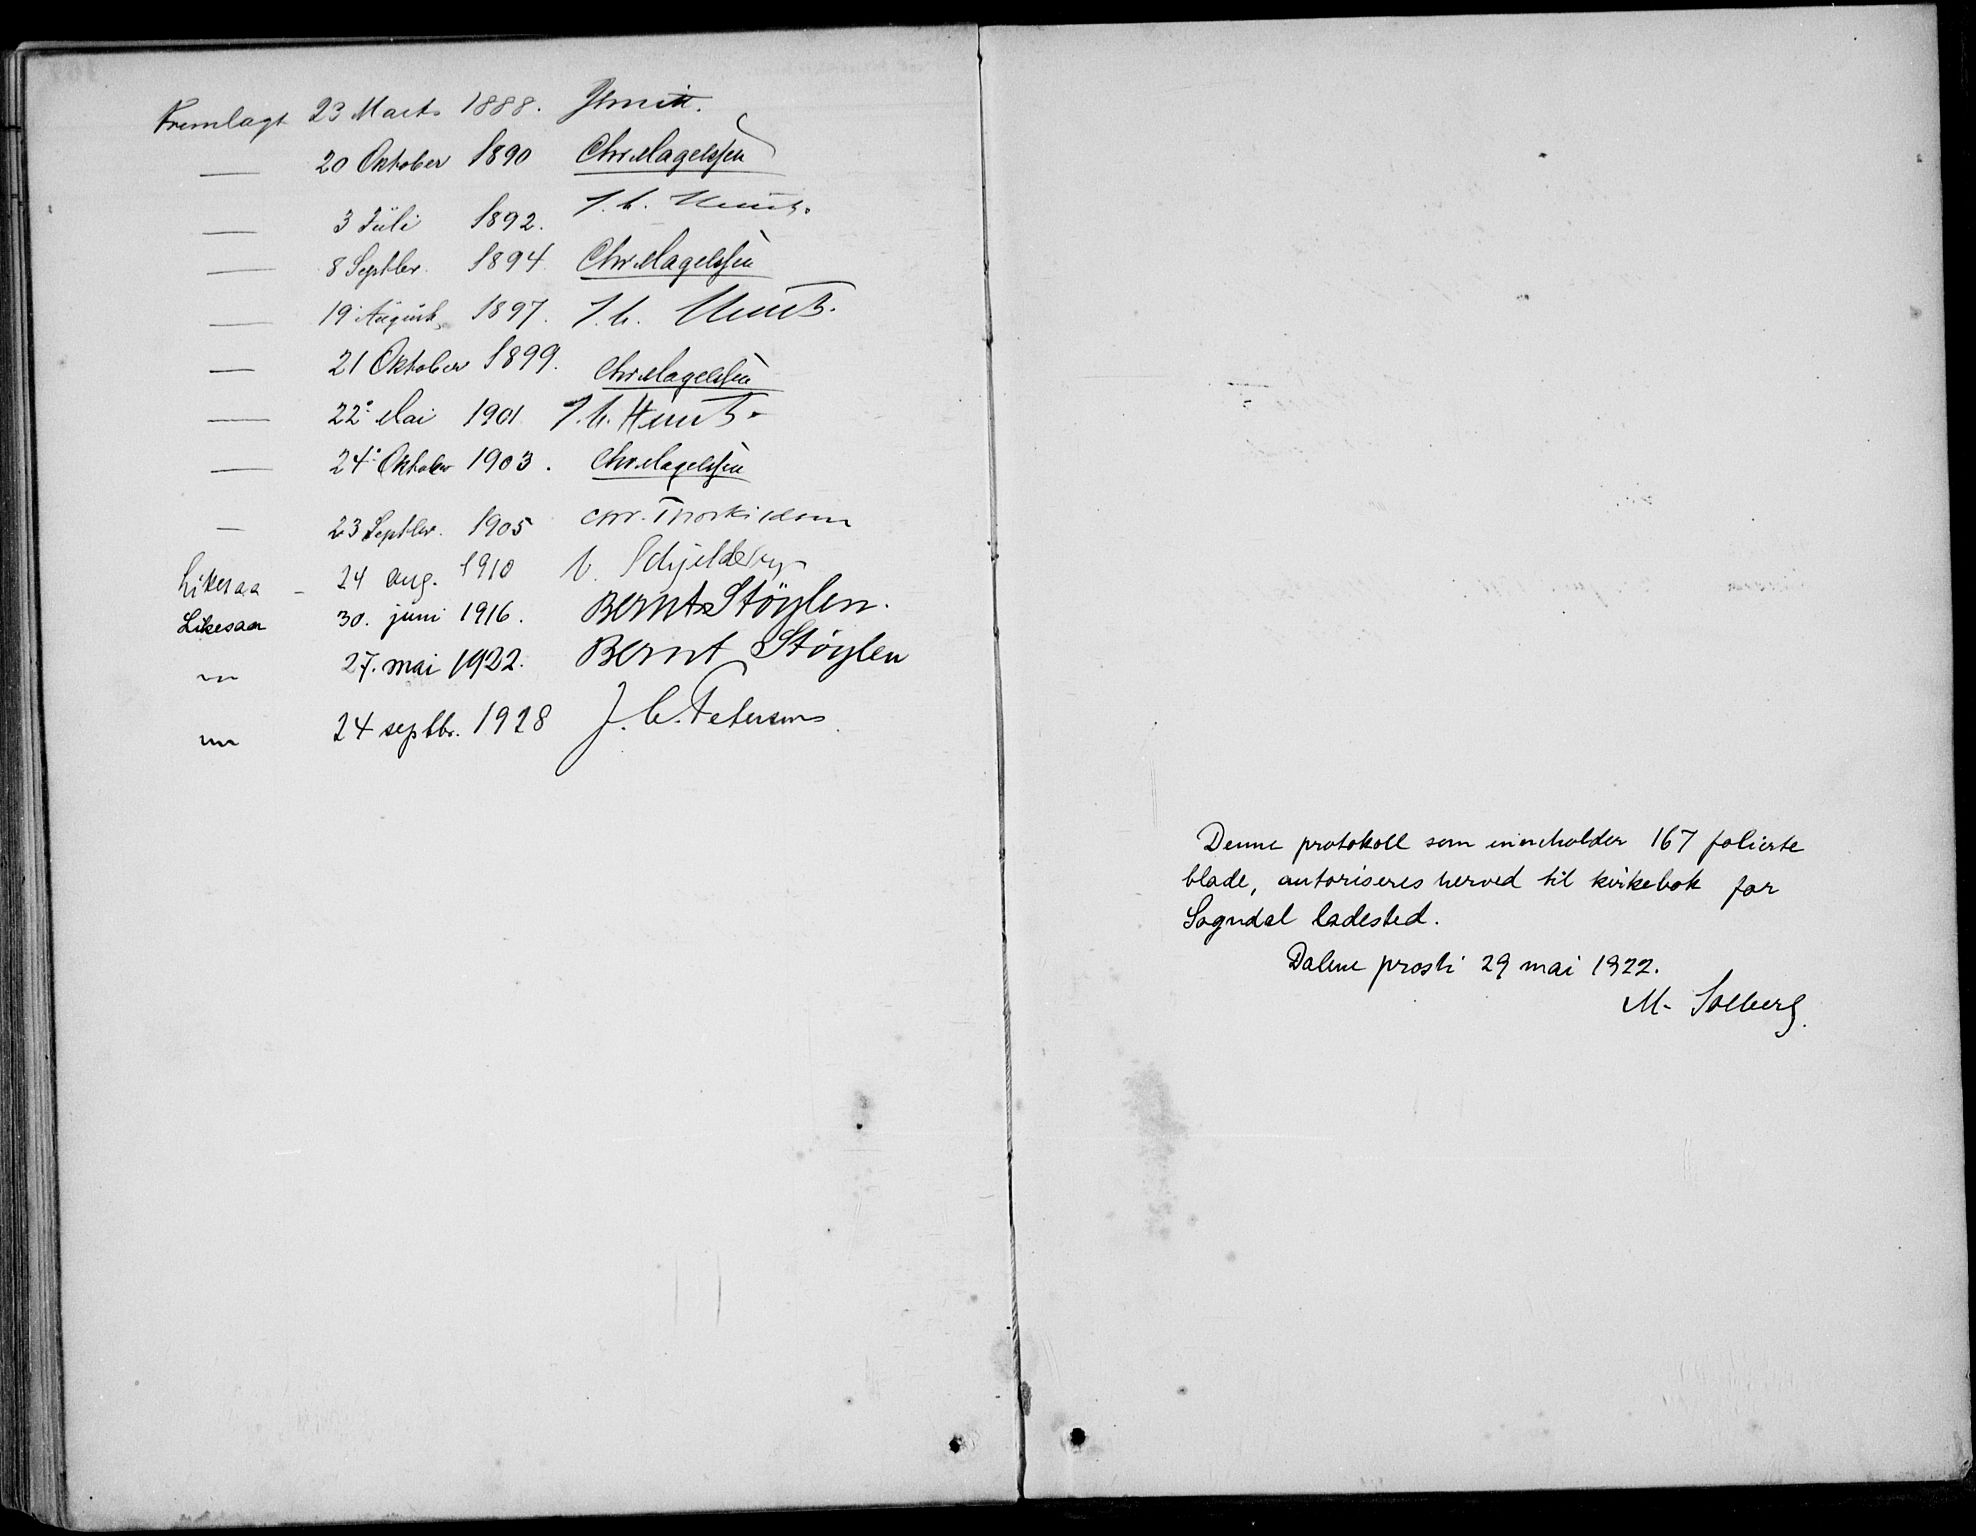 Fremlagt 23 Marts 1888.
— 20 Oktober 1890 Chr. Magelssen
— 3 Juli 1892. J. C.
— 8 Septbr. 1894 Chr. Magelssen
— 19 August 1897. J. C.
— 21 Oktober 1899. Chr. Magelssen
— 22. Mai 1901 J. C.
— 24. Oktober 1903. Chr. Magelssen
— 23 Septbr. 1905
Likesaa – 24 aug. 1910 Schjelderup
Likesaa 30. juni 1916. Bernt Støylen.
" 27. mai 1922. Bernt Støylen
" 24 septbr. 1928 J. C. Petersen
Denne protokoll som inneholder 167 folierte
blade, autoriseres herved til kirkebok for
Sogndal ladested.
Dalene prosti 29 mai 1922.
M. Solberg.